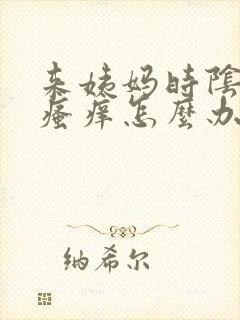 来姨妈时陰
瘙痒怎麼办
纳希尔